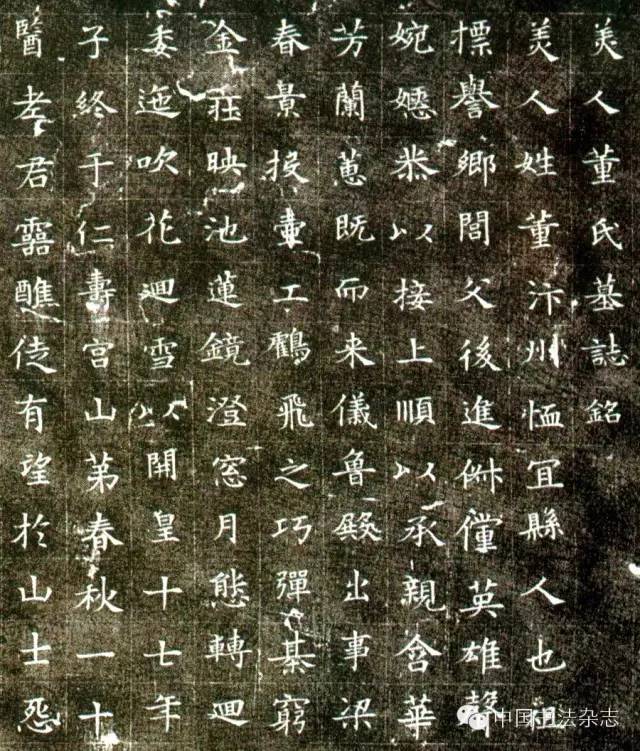 美人董氏墓誌銘
美人姓董汴州恤宜縣人也祖
摽譽鄉閭父後進俶儻英雄聲
婉嫕恭以接上順以承親含華
芳蘭蕙既而来儀魯殿出事梁
春景投壷工鶴飛之巧彈棊窮
金莊映池蓮鏡澄窓月態轉迴
委迤吹花迴雪以開皇十七年
子終于仁壽宮山第春秋一十
醫孝君靈醮徒有望於山士怨
中国书法杂志